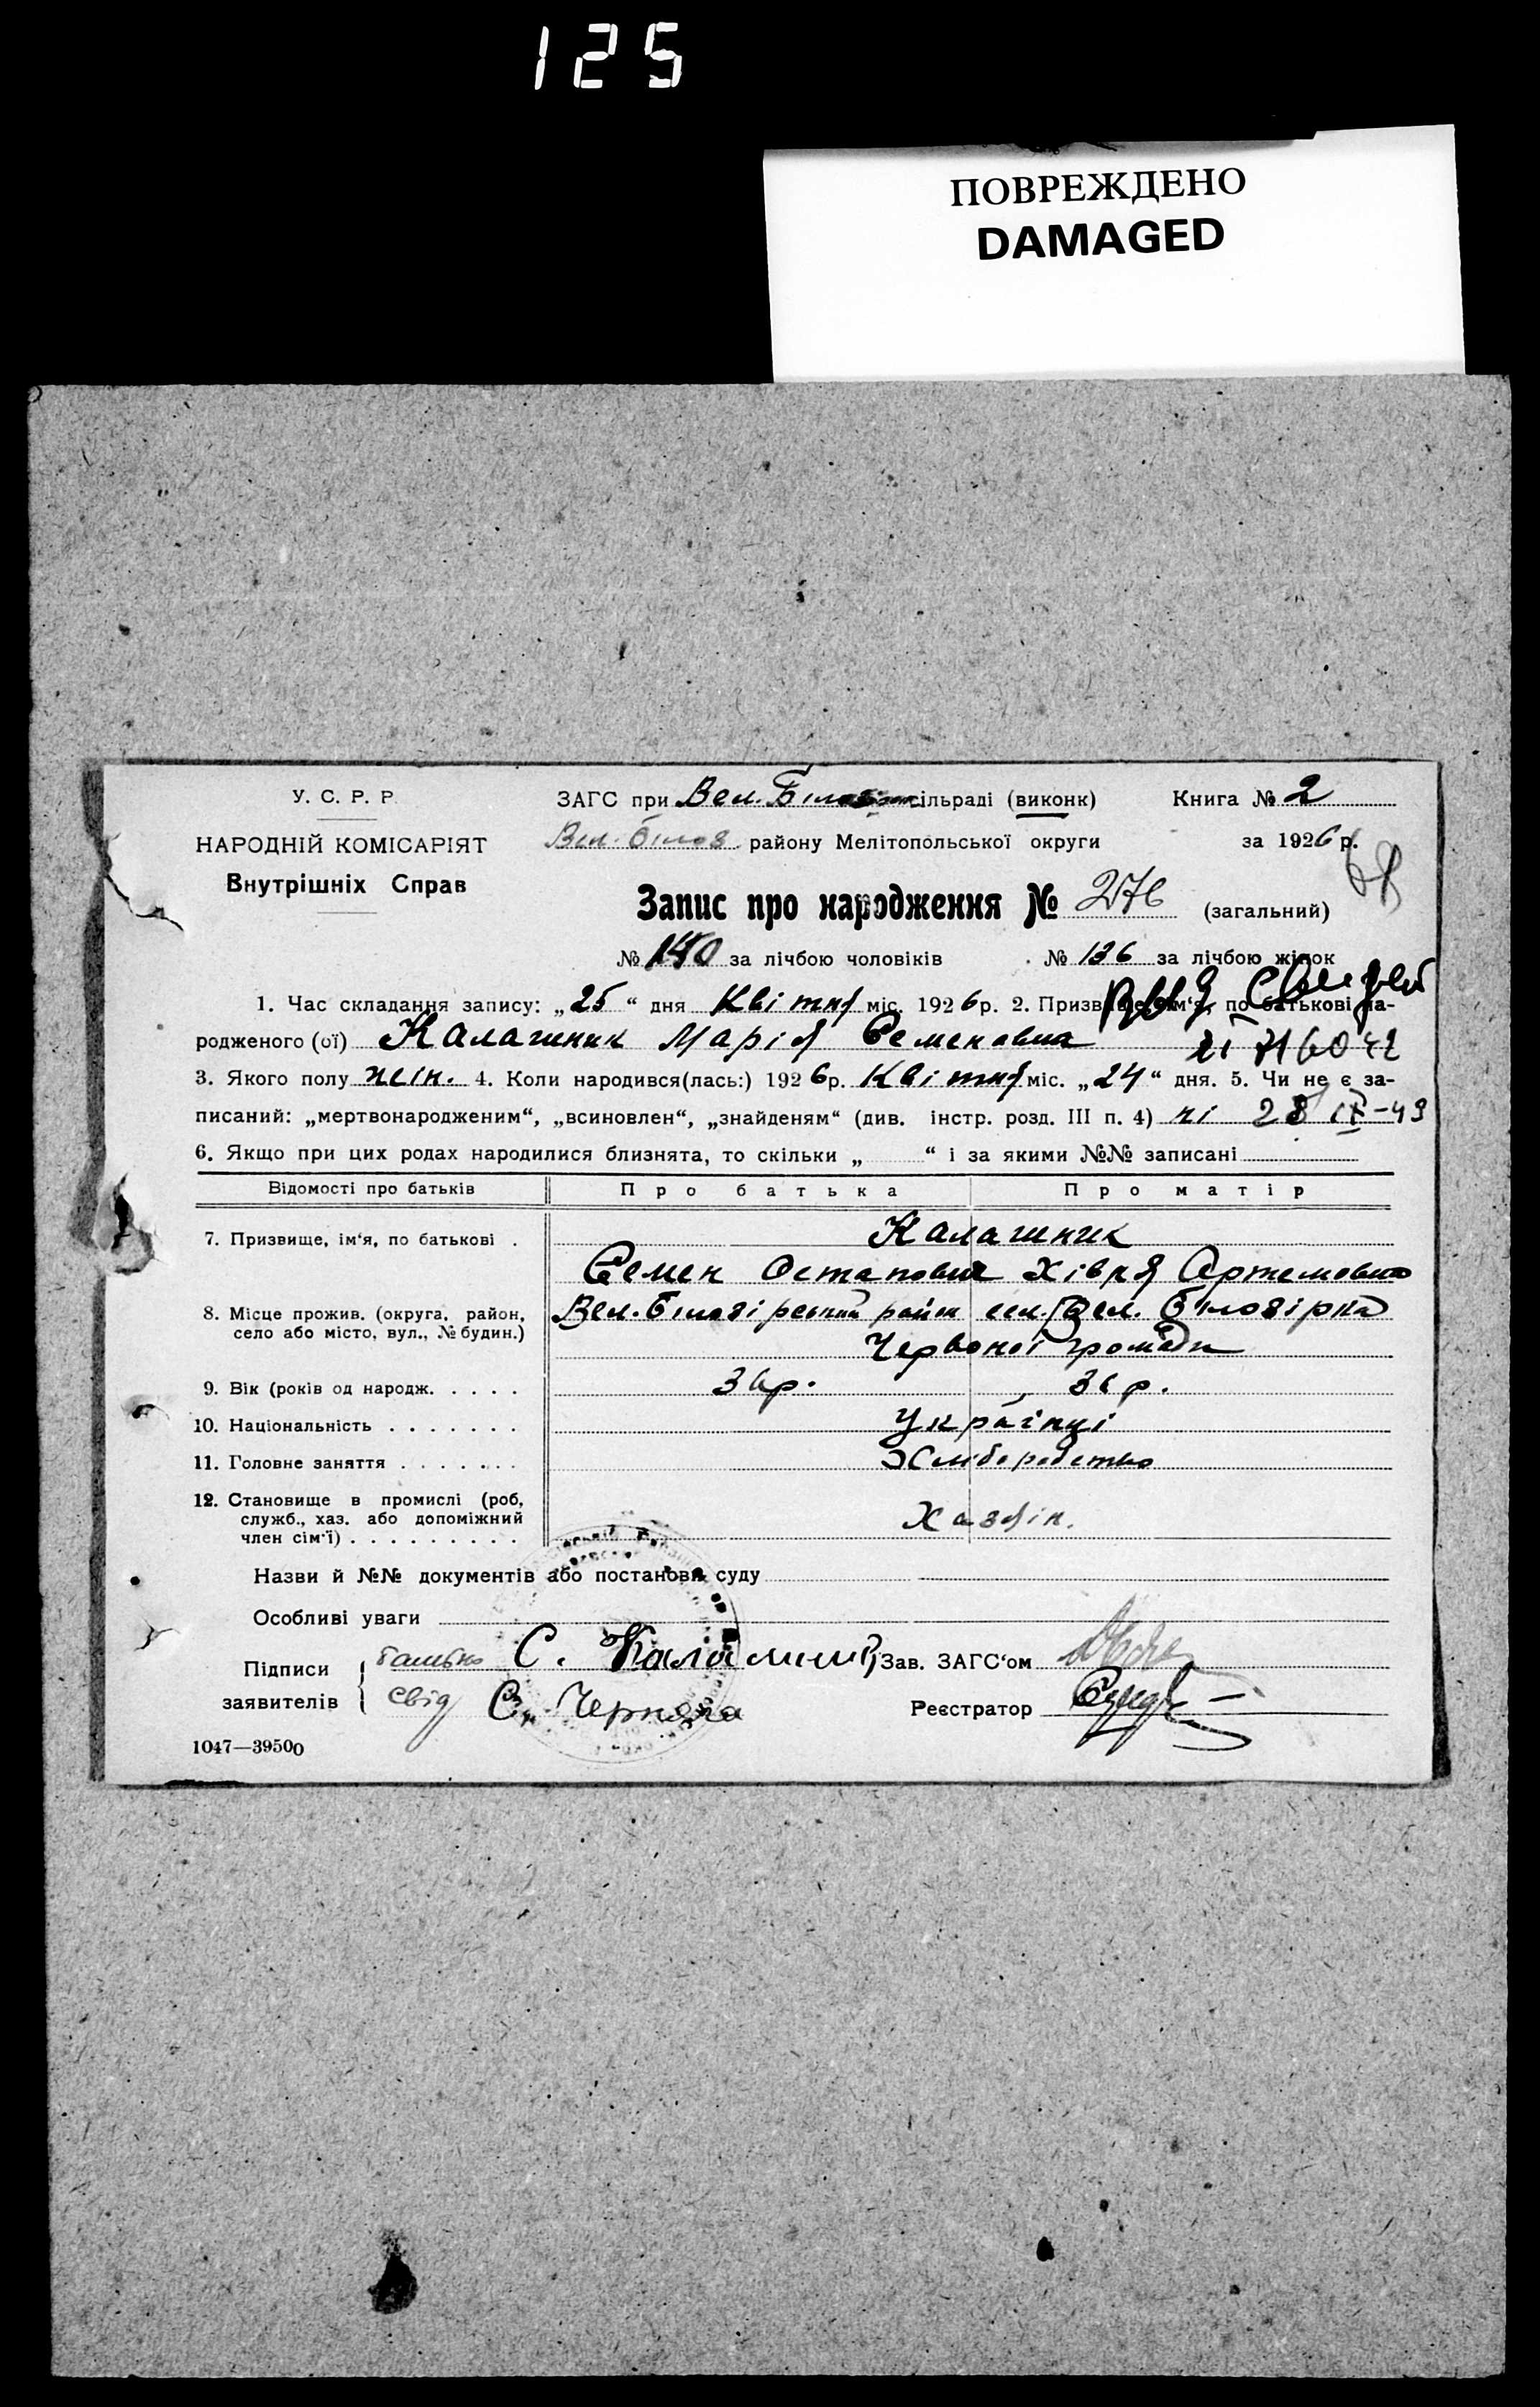 125
ПОВРЕЖДЕНО
DAMAGED
У. С. Р. Р.
НАРОДНІЙ КОМІСАРІЯТ
Внутрішніх Справ
ЗАГС при Вел. Білозір сільраді (виконк)
Книга № 2
Вел. Білоз. району Мелітопольської округи
за 1926 р.
68
Запис про народження № 276 (загальний)
№ 140 за лічбою чоловіків № 136 за лічбою жінок
1. Час складання запису: „25“ дня Квітня міс. 1926 р. 2. Призвище, ім'я, по батькові на-
родженого (ої) Калашник Марія Семеновна
3. Якого полу жін. 4. Коли народився(лась:) 1926 р. Квітня міс. „24“ дня. 5. Чи не є за-
писаний: „мертвонародженим“, „всиновлен“, „знайденям“ (див. інстр. розд. III п. 4) ні 28 IX-43
6. Якщо при цих родах народилися близнята, то скільки „ “ і за якими №№ записані
Відомості про батьків Про батька Про матір
7. Призвище, ім'я, по батькові . Калашник
Семен Остапович Хівря Артемовна
8. Місце прожив. (округа, район, село або місто, вул., № будин.) Вел. Білозірський район сел. Вел. Білозірка
Червоної громади
9. Вік (років од народж. . . . . 36 р. 36 р.
10. Національність . . . . . . . Українці
11. Головне заняття . . . . . . . Хліборобство
12. Становище в промислі (роб,
служб., хаз. або допоміжний
член сім'ї) . . . . . . . . . Хазяїн.
Назви й №№ документів або постанови суду
Особливі уваги
Підписи заявителів { батько С. Калашник
Зав. ЗАГС'ом
свід С. Черняга
Реєстратор
1047—39500